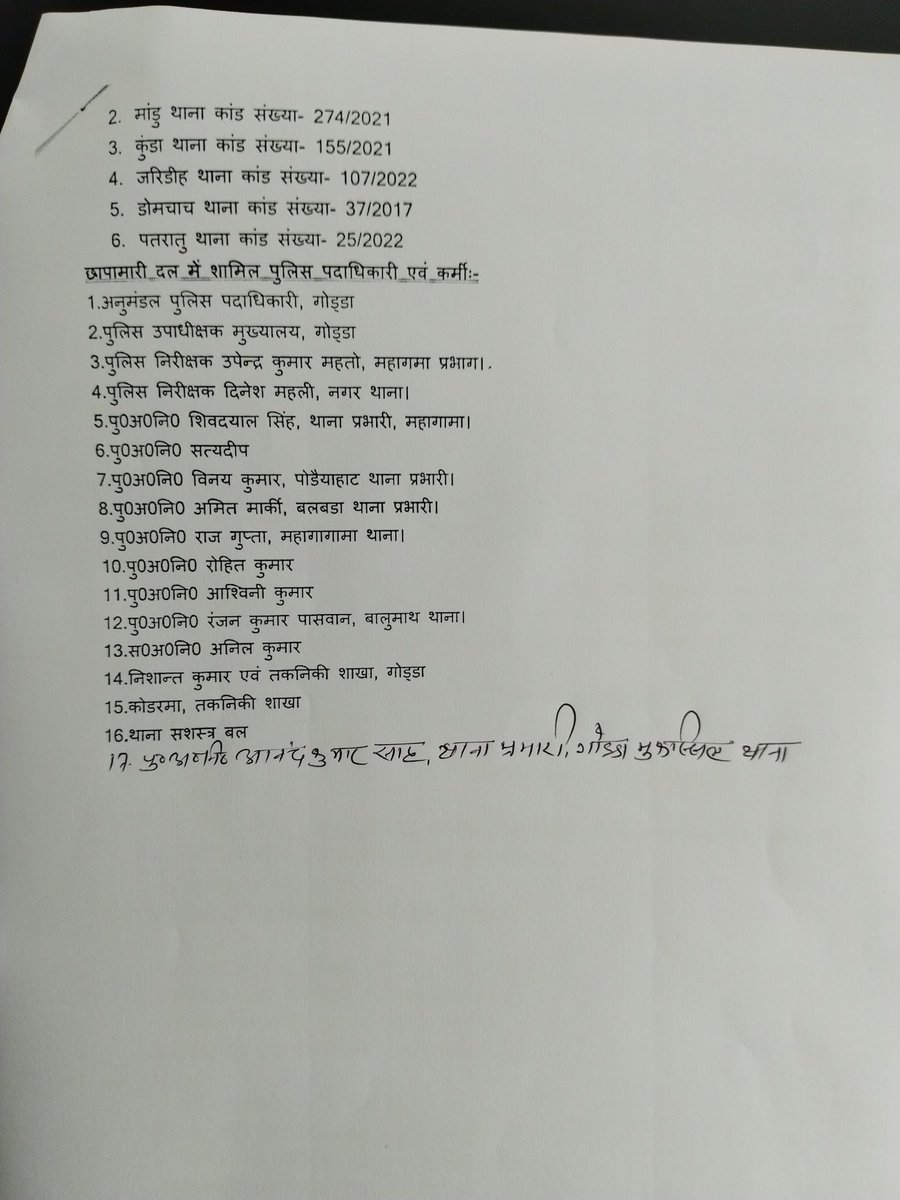 2. मांडु थाना कांड संख्या- 274/2021
3. कुंडा थाना कांड संख्या- 155/2021
4. जरिडीह थाना कांड संख्या- 107/2022
5. डोमचाच थाना कांड संख्या- 37/2017
6. पतरातु थाना कांड संख्या- 25/2022
छापामारी दल में शामिल पुलिस पदाधिकारी एवं कर्मीः-
1.अनुमंडल पुलिस पदाधिकारी, गोड्डा
2.पुलिस उपाधीक्षक मुख्यालय, गोड्डा
3.पुलिस निरीक्षक उपेन्द्र कुमार महतो, महागमा प्रभाग।.
4.पुलिस निरीक्षक दिनेश महली, नगर थाना।
5.पु0अ0नि0 शिवदयाल सिंह, थाना प्रभारी, महागामा।
6.पु0अ0नि0 सत्यदीप
7.पु0अ0नि0 विनय कुमार, पोडैयाहाट थाना प्रभारी।
8.पु0अ0नि0 अमित मार्की, बलबडा थाना प्रभारी।
9.पु0अ0नि0 राज गुप्ता, महागागामा थाना।
10.पु0अ0नि0 रोहित कुमार
11.पु0अ0नि0 आश्विनी कुमार
12.पु0अ0नि0 रंजन कुमार पासवान, बालुमाथ थाना।
13.स0अ0नि0 अनिल कुमार
14.निशान्त कुमार एवं तकनिकी शाखा, गोड्डा
15.कोडरमा, तकनिकी शाखा
16.थाना सशस्त्र बल
17. पु0अ0नि0 आनंद कुमार साह, थाना प्रभारी, गोड्डा मुफस्सिल थाना